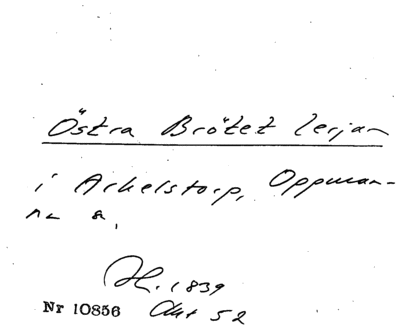 Östra Brötet lerjan
i Arkelstorp, Oppman-
na s.
H. 1839
Nr 10856 Akt 52